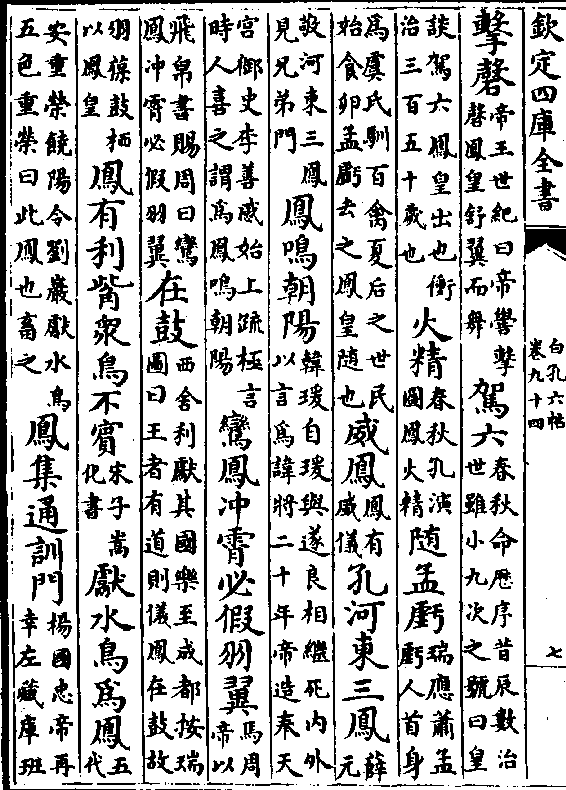 欽定四庫全書
白孔六帖
卷九十四
七
擊磬帝王世紀曰帝嚳擊磬鳳皇舒翼而舞駕六春秋命歷序昔辰數治世雖小九次之號曰皇
談駕六鳳皇出也衝治三百五十歲也火精春秋孔演圖鳳火精隨孟虧瑞應蕭孟虧人首身
為虞氏馴百禽夏后之世民始食卵孟虧去之鳳皇隨也威鳳鳳有威儀孔河東三鳳薛元
敬河東三鳳見兄弟門鳳鳴朝陽韓瑗自瑗與遂良相繼死内外以言為諱將二十年帝造奉天
宮御史李善感始上疏極言時人喜之謂為鳳鳴朝陽鸞鳳冲霄必假羽翼馬周帝以
飛帛書賜周曰鸞鳳冲霄必假羽翼在鼓西舍利獻其國樂至成都按瑞圖曰王者有道則儀鳳在鼓故
羽葆鼓栖以鳳皇鳳有利觜衆鳥不賓宋子嵩化書獻水鳥為鳳五代
安重榮饒陽令劉巖獻水鳥五色重榮曰此鳳也畜之鳳集通訓門楊國忠帝再幸左藏庫班